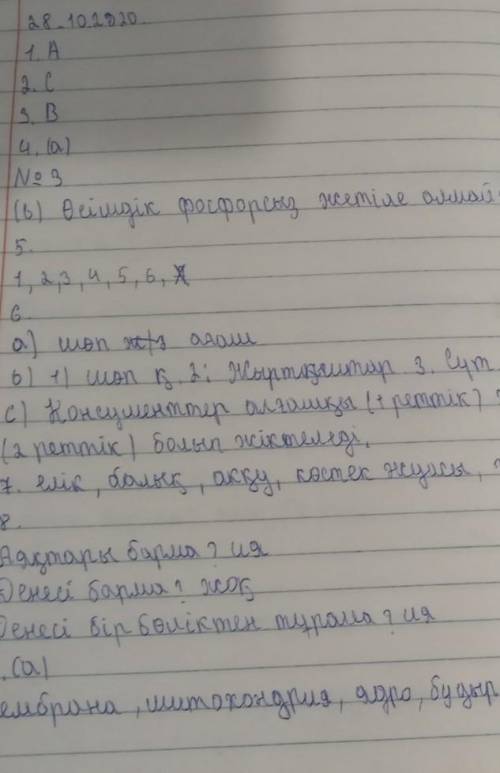 28.10.2020.
1. А
2. С
3. В
4. (а)
№ 3
(b) Өсімдік фосфорсыз жетіле алмай
5.
1, 2, 3, 4, 5, 6,
6.
а) шөп адам
b) 1) шөп қ. 2: Жыртқыштар 3. Сүт
с) Консументтер алғашқы (1 реттік)
(2 реттік) болып жіктеледі.
7. елік, балық, аққу, көстек жуасы,
8.
Аяқтары барма? ия
Денесі барма? жоқ
Денесі бір бөліктен тұрама? ия
. (а)
ембрана, митохондрия, ядро, бұдыр